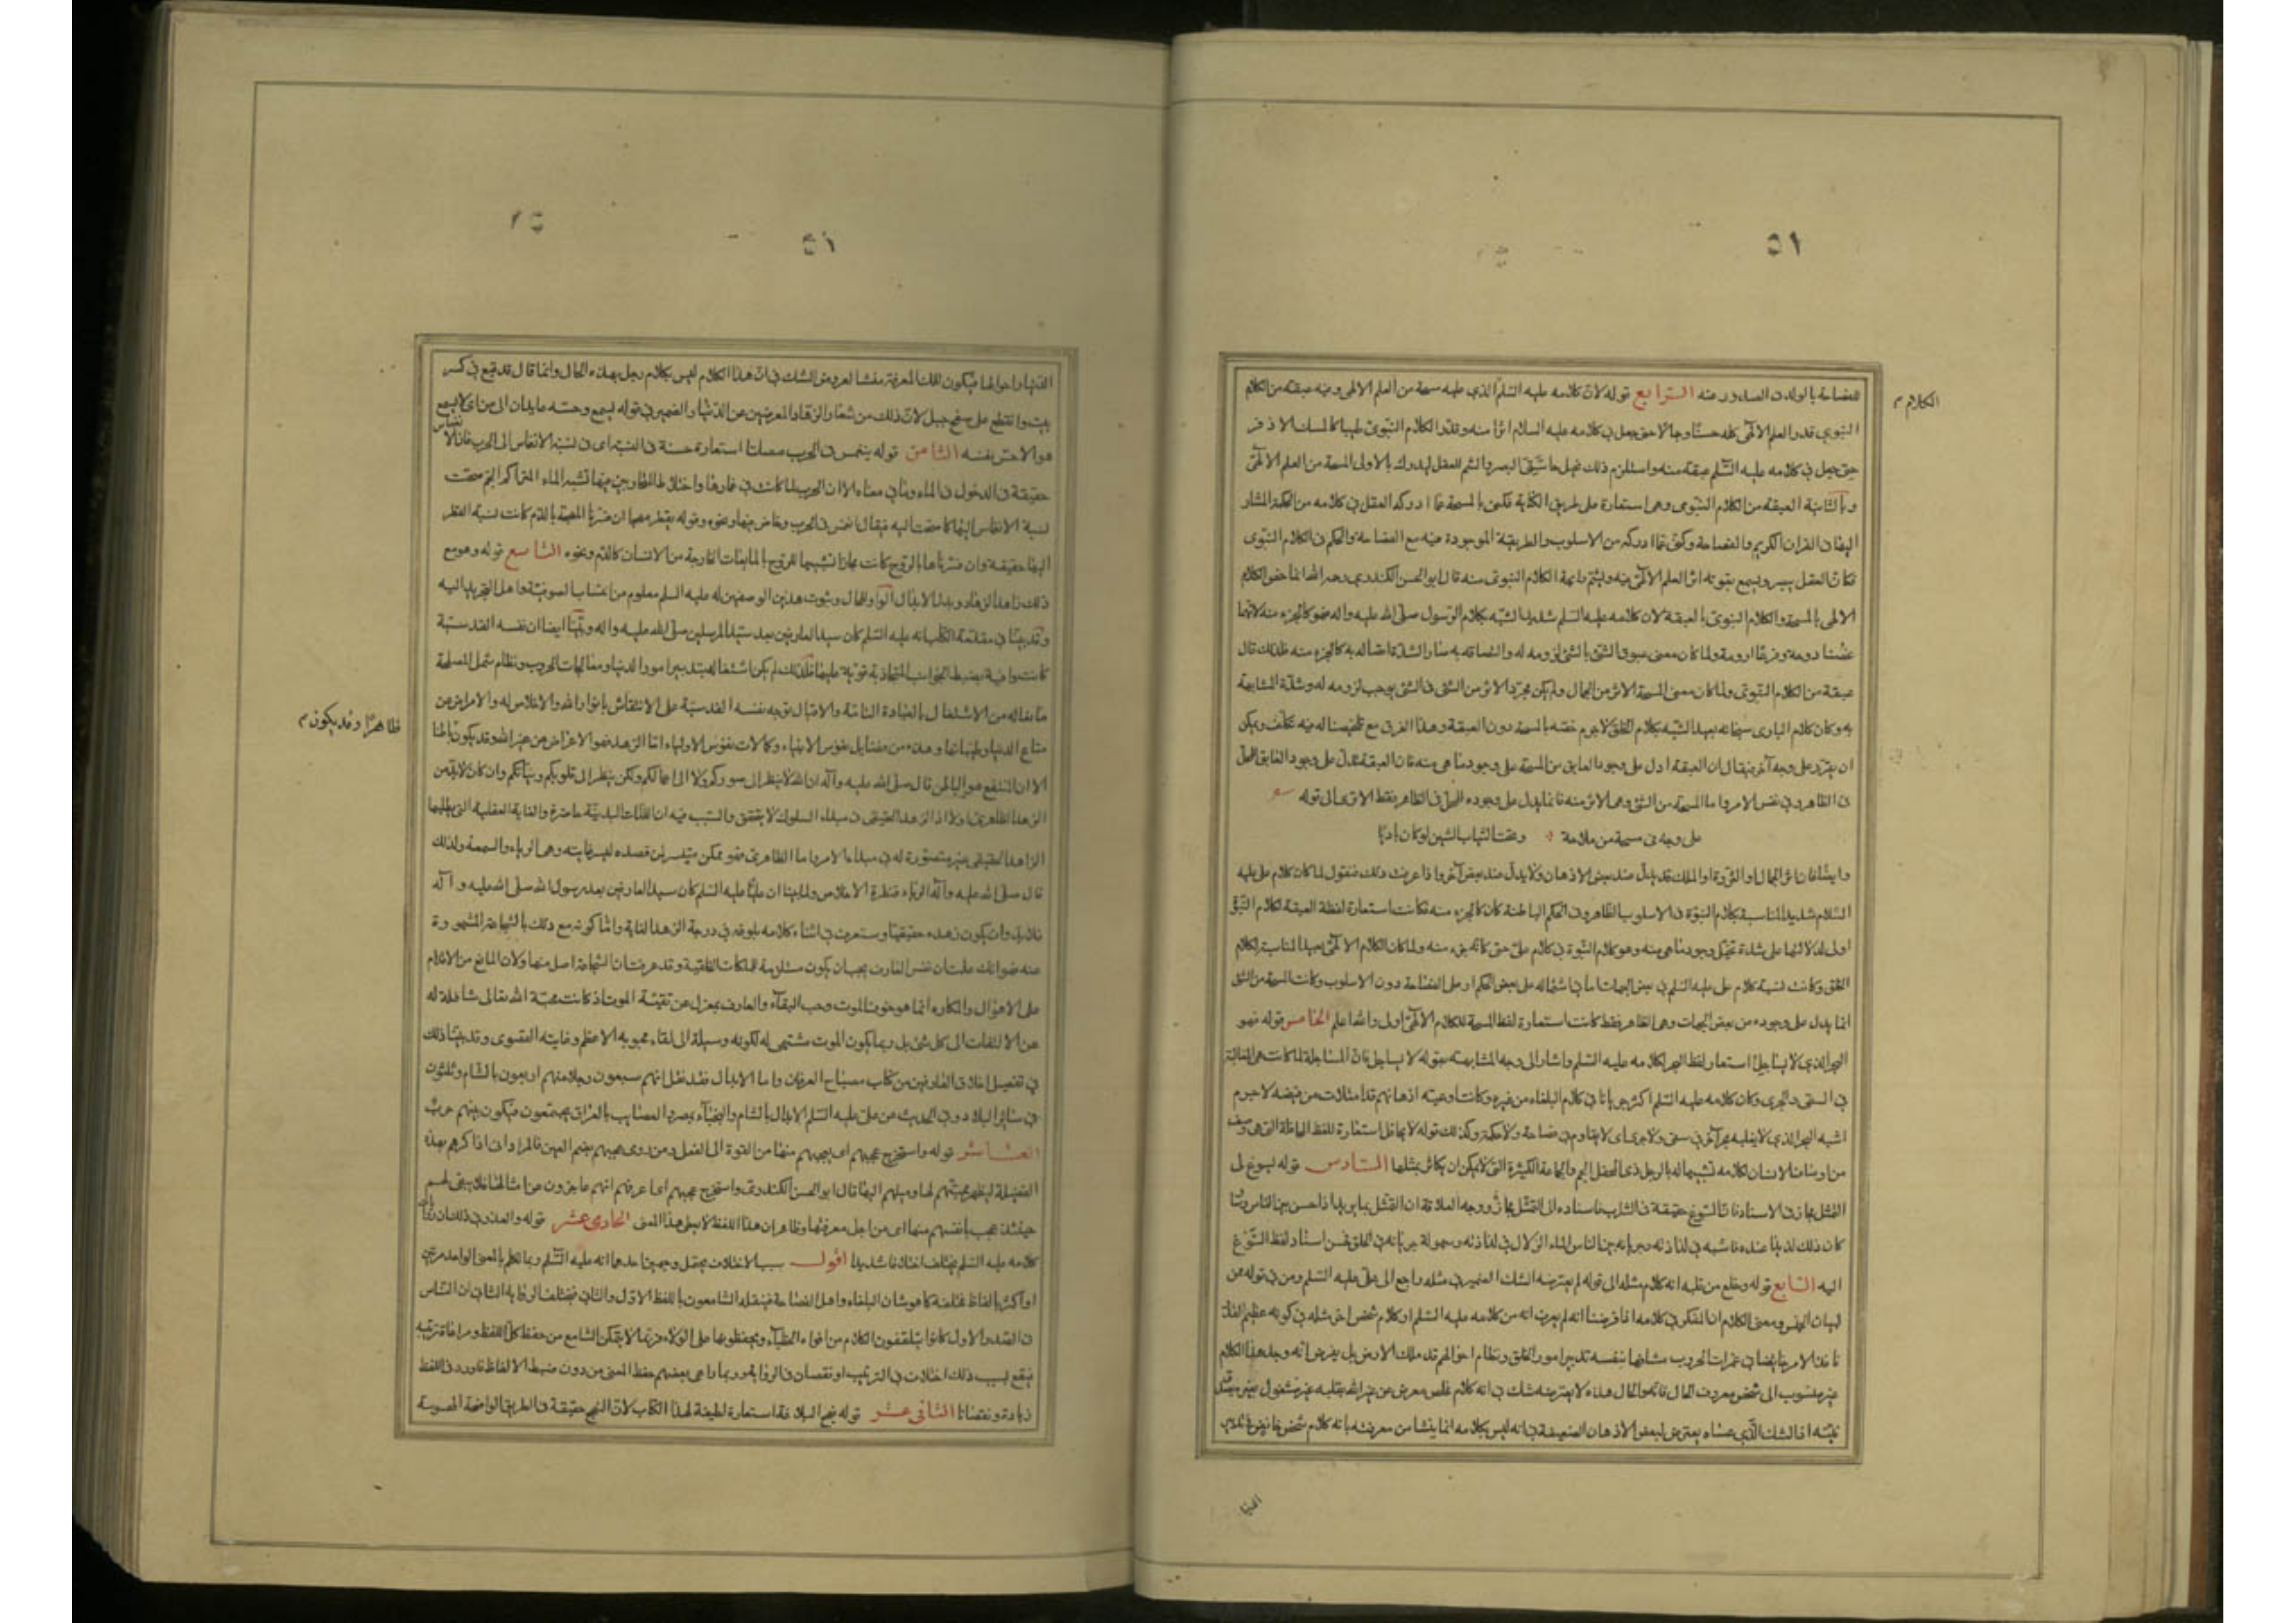 ٥١
الكلام م
للفصاحة بالولد في الصدور عنه الرابع قوله لان كلامه عليه السلم الذي عليه مسحة من العلم الالهى وفيه عبقة من الكلام
النبوي قدر العلم الالهى كله حسنًا وجمالا حتى جعل في كلامه عليه السلام اثرا منه وقدّر الكلام النبوى طيبا كالمسك الاذفر
حتى جعل في كلامه عليه السلم عبقة منه واستلزم ذلك تخيل حاسّتى البصر والشم للعقل ليدرك بالاولى المسحة من العلم الالهى
وبالثانية العبقة من الكلام النبوى وهى استعارة على طريق الكناية فكنى بالمسحة عما ادركه العقل في كلامه من الحكمة المشار
اليها في القران الكريم والفصاحة وكنى عما ادركه من الاسلوب والطريقة الموجودة فيه مع الفصاحة والحكم في الكلام النبوى
فكان العقل يبصر ويسمع بقوته اثر العلم الالهى فيه ويشم رايحة الكلام النبوى منه قال ابو الحسن الكندري رحمه الله انما خص الكلام
الالهى بالمسحة والكلام النبوى بالعبقة لان كلامه عليه السلم شديد الشبه بكلام الرسول صلى الله عليه واله فهو كالجزء منه لانهما
غصنا دومة وفرعا ارومة ولما كان معنى عبوق الشئ بالشئ لزومه له والتصاقه به صار لشدة اتصاله به كالجزء منه فلذلك قال
عبقة من الكلام النبوى ولما كان معنى المسحة الاثر من الجمال ولم يكن مجرّد الاثر من الشئ في الشئ يوجب لزومه له وشدّة المشابهة
به وكان كلام البارى سبحانه بعيد الشبه بكلام الخلق لاجرم خصّه بالمسحة دون العبقة وهذا الفرق مع تلخيصنا له فيه تكلّف ويمكن
ان يقرّر على وجه آخر فيقال ان العبقة ادل على وجود العابق من المسحة على وجود ما هى منه فان العبقة تدل على وجود العابق المحلّ
في الظاهر وفي نفس الامر واما المسحة من الشئ وهى الاثر منه فانما يدل على وجوده للمحل في الظاهر فقط الا ترى الى قوله
على وجه مى مسحة من ملاحة وتحت الثياب الشين لو كان باديا
وايضا فان اثر الجمال او الثروة او الملك قد يدلّ عند بعض الاذهان ولا يدلّ عند بعض آخر واذا عرفت ذلك فنقول لما كان كلام على عليه
السلام شديد المناسبة بكلام النبوّة في الاسلوب الظاهر وفى الحكم الباطنة كان كالجزء منه فكانت استعارة لفظة العبقة لكلام النبوّة
اولى لدلالتها على شدة تخيّل وجود ما هى منه وهو كلام النبوة في كلام علىّ حتى كانّه جزء منه ولما كان الكلام الالهى بعيد المناسبة لكلام
الخلق وكانت نسبة كلام على عليه السلم في بعض الجهات اما في اشتماله على بعض الحكم او على الفصاحة دون الاسلوب وكانت المسحة من الشئ
انما يدل على وجوده من بعض الجهات وهى الظاهر فقط كانت استعارة لفظ المسحة للكلام الالهى اولى والله اعلم الخامس قوله فهو
البحر الذى لا يساجل استعار لفظ البحر لكلامه عليه السلم واشار الى وجه المشابهة بقوله لا يساجل فانّ المساجلة لما كانت هى المغالبة
في السقى والجرى وكان كلامه عليه السلم اكثر جريانا في كلام البلغاء من غيره وكانت اوعية اذهانهم قد امتلات من فيضه لاجرم
اشبه البحر الذي لا يغلبه بحر آخر في سقى ولا جرى اى لا يقاوم في فصاحة ولا حكمة وكذلك قوله لا يحافل استعارة للفظ المحافلة التى هى وصف
من اوصاف الانسان لكلامه تشبيها له بالرجل ذى الحفل الجم والجماعة الكثيرة التى لا يمكن ان يكاثر بمثلها السادس قوله يسوغ لى
التمثل مجاز في الاسناد فان السّوغ حقيقة في الشراب فاسناده الى التمثّل مجاز ووجه العلاقة ان التمثل بما يريد اذا حسن بين الناس وشاع
كان ذلك لذيذا عنده فاشبه في لذاذته وجريانه بين الناس الماء الزلال في لذاذته وسهولة جريانه في الحلق فحسن اسناد لفظ السّوغ
اليه السابع قوله وخلع من قلبه انه كلام مثله الى قوله لم يعترضه الشك الضمير في مثله راجع الى علىّ عليه السلم ومن في قوله ممن
لبيان الجنس ومعنى الكلام ان المفكر في كلامه اذا فرضنا انه لم يعرف انه من كلامه عليه السلم او كلام شخص اخر مثله في كونه عظيم القدر
نافذ الامر خايضا في غمرات الحروب شاغلا نفسه بتدبير امور الخلق ونظام احوالهم قد ملك الارض بل يفرض انه وجد هذا الكلام
غير منسوب الى شخص معروف الحال فانه والحال هذه لا يعترضه شك في انه كلام مخلص معرض عن غير الله بقلبه غير مشغول بغير
نفسه اذ الشك الذى عساه يعترض لبعض الاذهان الضعيفة في انه ليس بكلامه انما ينشا من معرفته بانه كلام شخص خايض في تدبير
الدنيا
الدنيا واحوالها فيكون تلك المعرفة منشا لعروض الشك في انّ هذا الكلام ليس بكلام رجل بهذه الحال وانما قال قد قبع في كسر
بيت وانقطع على سفح جبل لانّ ذلك من شعار الزهاد والمعرضين عن الدّنيا والضمير في قوله ليسمع وحسّه عايدان الى من اى لا يسمع
هو الا حسّ نفسه الثامن قوله ينغمس في الحرب مصلتا استعارة حسنة في النسبة اى في نسبة الانغماس الى الحرب فان الانغماس
حقيقة في الدخول في الماء وما في معناه الا ان الحرب لما كانت في غمارها واختلاط المتحاربين فيها تشبه الماء المتراكم الجمّ صحّت
نسبة الانغماس اليها كما صحّت اليه فيقال انغمس في الحرب وخاض فيها ونحوه وقوله يقطر مهجا ان فسّرنا المهجة بالدم كانت نسبة القطر
اليها حقيقة وان فسّرناها بالروح كانت مجازا تشبيها للروح بالمايعات الخارجة من الانسان كالدّم ونحوه التاسع قوله وهو مع
ذلك زاهد الزهاد وبدل الابدال الواو للحال وثبوت هذين الوصفين له عليه السلم معلوم من انتساب الصوفيّة واهل التجريد اليه
وقد بينّا في مقدّمة الكتاب انه عليه السّلم كان سيد العارفين بعد سيّد المرسلين صلى الله عليه واله وبيّنّا ايضا ان نفسه القدسيّة
كانت وافية بضبط الجوانب المتجاذبة قويّة عليها فلذلك لم يكن اشتغاله بتدبير امور الدنيا ومعالجات الحروب ونظام شمل المصلحة
مانعا له من الاشتغال بالعبادة التامّة والاقبال بوجه نفسه القدسيّة على الانتقاش بانوار الله والاخلاص له والاعراض عن
متاع الدنيا وطيباتها وهذه من فضايل نفوس الانبياء وكمالات نفوس الاولياء امّا الزهد فهو الاعراض عن غير الله وقد يكون باطنا
ظاهرًا وقد يكون م
الا ان المنتفع به هو الباطن قال صلى الله عليه وآله ان الله لا ينظر الى صوركم ولا الى اعمالكم ولكن ينظر الى قلوبكم ونيّاتكم وان كان لابدّ من
الزهد الظاهرى اولا اذ الزهد الحقيقى في مبداء السلوك لا يتحقق والسّبب فيه ان اللّذات البدنيّة حاضرة والغاية العقلية التى يطلبها
الزاهد الحقيقى غير متصوّرة له في مبداء الامر واما الظاهرى فهو ممكن متيسر لمن قصده ليسر غايته وهى الرياء والسمعة ولذلك
قال صلى الله عليه وآله الرياء قنطرة الاخلاص ولما بينا ان عليّا عليه السلم كان سيد العارفين بعد رسول الله صلى الله عليه وآله
فلابدّ وان يكون زهده حقيقيا وستعرف في اثناء كلامه بلوغه في درجة الزهد الغاية وامّا كونه مع ذلك بالشجاعة المشهورة
عنه فهو انك علمت ان نفس العارف يجب ان يكون مستلزمة للملكات الخلقيّة وقد عرفت ان الشجاعة اصل منها ولان المانع من الاقدام
على الاهوال والمكاره انما هو خوف الموت وحب البقاء والعارف بمعزل عن تقيّة الموت اذ كانت محبّة الله تعالى شاغلة له
عن الالتفات الى كل شئ بل ربما يكون الموت مشتهى له لكونه وسيلة الى لقاء محبوبه الاعظم وغايته القصوى وقد بيّنّا ذلك
في تفصيل اخلاق العارفين من كتاب مصباح العرفان واما الابدال فقد نقل انهم سبعون رجلا منهم اربعون بالشام وثلثون
في ساير البلاد وفي الحديث عن علىّ عليه السّلم الابدال بالشام والنجباء بمصر والعصايب بالعراق يجتمعون فيكون بينهم حرب
العاشر قوله واستخرج عجبهم اى يعجبهم منها من القوة الى الفعل ومن روى عجبهم بضم العين فالمراد ان اذاكرهم بهذه
الفضيلة ليظهر محبّتهم لها وميلهم اليها قال ابو الحسن الكندرى واستخرج عجبهم اى اعرفهم انهم عاجزون عن امثالها فلا يبقى لهم
حينئذ عجب بانفسهم منها اى من اجل معرفتها وظاهر ان هذا اللفظ لا ينبئ هذا المعنى الحادى عشر قوله والعذر في ذلك ان روايات
كلامه عليه السلم تختلف اختلافا شديدا اقول سبب الاختلاف يحتمل وجهين احدهما انه عليه السّلم ربما تكلم بالمعنى الواحد مرتين
او اكثر بالفاظ مختلفة كما هو شان البلغاء واهل الفصاحة فينقله السّامعون باللفظ الاوّل والثانى فيختلف الرواية الثانى ان الناس
في الصّدر الاول كانوا يتلقفون الكلام من افواه الخطباء ويحفظونها على الولاء فربّما لا يتمكّن السّامع من حفظ كلّ اللفظ ومراعاة ترتيبه
فيقع بسبب ذلك اختلاف في الترتيب او نقصان في الرواية وربما راعى بعضهم حفظ المعنى من دون ضبط الالفاظ فاورد في اللفظ
زيادة ونقصانا الثانى عشر قوله نهج البلاغة استعارة لطيفة لهذا الكتاب لانّ النهج حقيقة في الطريق الواضحة المحسوسة